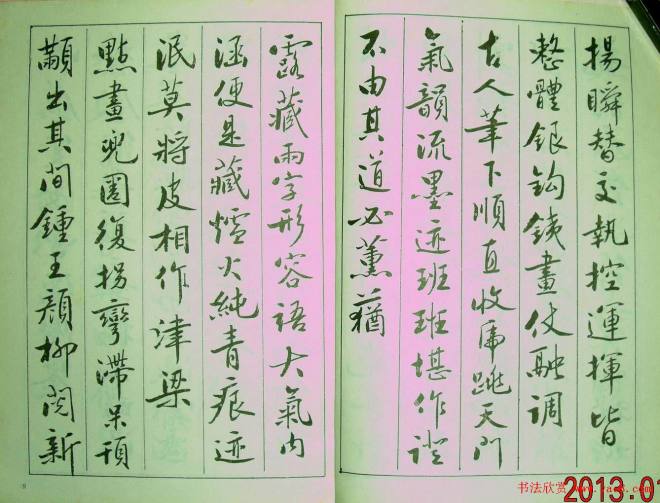 揚瞬替交執控運揮皆
整體銀鈎鐵畫仗融調
古人筆下順直收馬跳天門
氣韻流墨迹班班堪作證
不由其道必薰蕕
露藏兩字形容語大氣內
涵便是藏爐火純青痕迹
泯莫將皮相作津梁
點畫兜圈復拐彎滯呆頓
顙出其間鍾王顏柳閱新
2013.0
书法欣赏
9